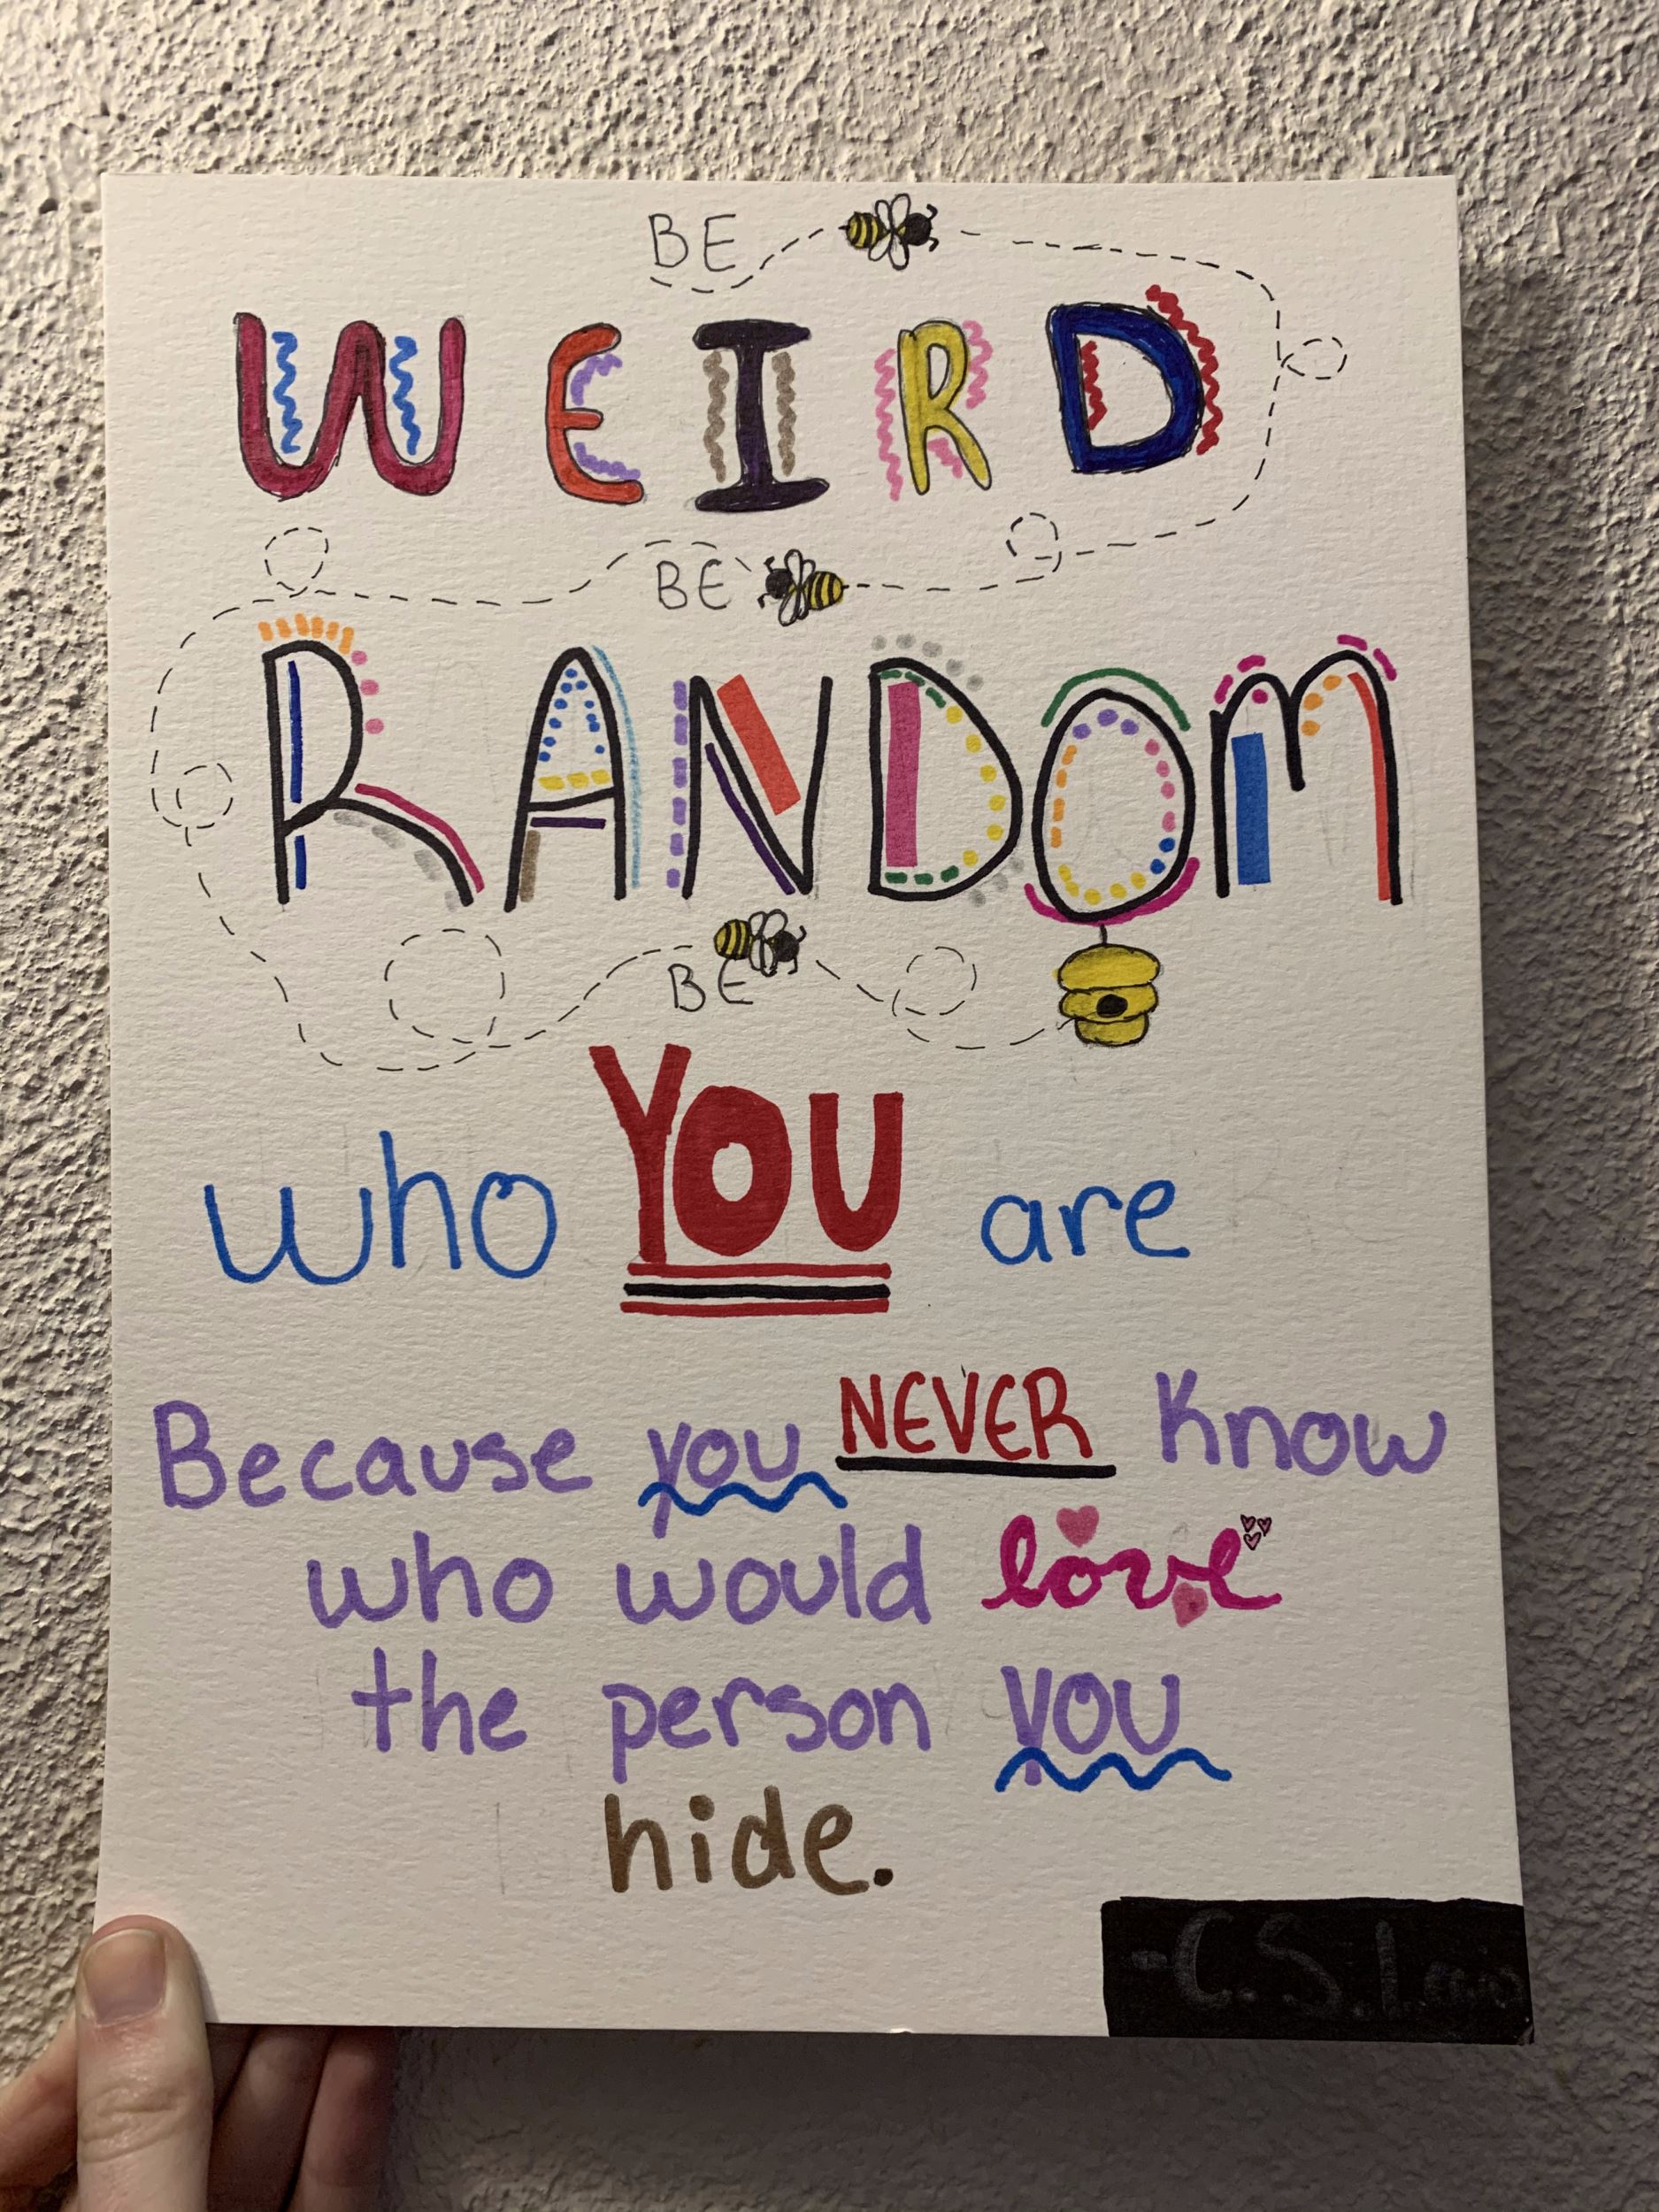 BE
WEIRD
BE
RANDOM
BE
who YOU are
Because you NEVER Know
who would love
the person you
hide.
-C.S.